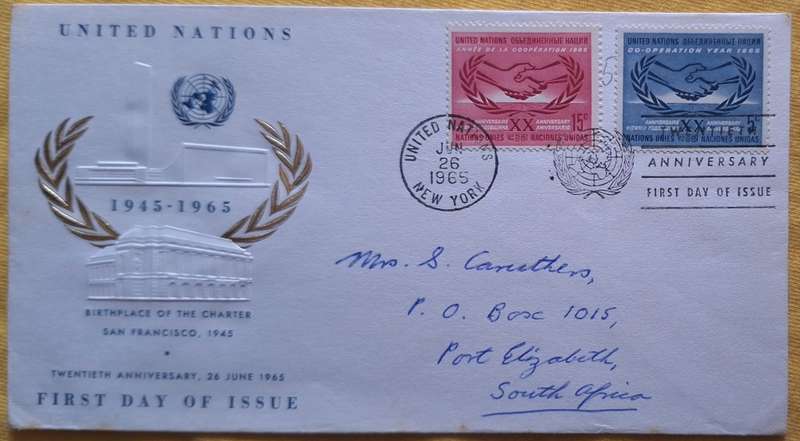 UNITED NATIONS
1945-1965
BIRTHPLACE OF THE CHARTER
SAN FRANCISCO, 1945
TWENTIETH ANNIVERSARY, 26 JUNE 1965
FIRST DAY OF ISSUE
UNITED NATIONS ОБЪЕДИНЕННЫЕ НАЦИИ
ANNÉE DE LA COOPÉRATION 1965
ANNIVERSARY
XX
ANNIVERSARY
ANIVERSARIO
15c
NATIONS UNIES
NACIONES UNIDAS
5
UNITED NATIONS ОБЪЕДИНЕННЫЕ НАЦИИ
CO-OPERATION YEAR 1965
ANNIVERSARY
XX
ANNIVERSARY
5c
NATIONS UNIES
NACIONES UNIDAS
UNITED NATIONS
JUN
26
1965
NEW YORK
TWENTIETH
ANNIVERSARY
FIRST DAY OF ISSUE
Mrs. S. Caruthers,
P. O. Box 1015,
Port Elizabeth,
South Africa